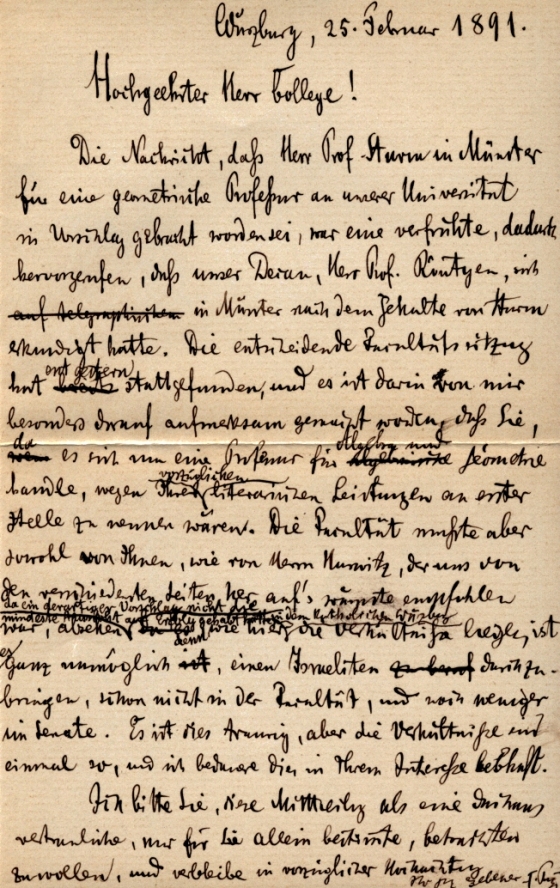 Würzburg, 25. Februar 1891.
Hochgeehrter Herr College!
Die Nachricht, daß Herr Prof Sturm in Münster
für eine geometrische Professur an unserer Universität
in Vorschlag gebracht worden sei, war eine verfrühte, dadurch
hervorgerufen, daß unser Decan, Herr Prof. Röntgen, sich
auf telegraphischem in Münster nach dem Gehalte von Sturm
erkundigt hatte. Die entscheidende Facultätssitzung
erst gestern
hat bereits stattgefunden, und es ist darin von mir
besonders darauf aufmerksam gemacht worden, daß Sie,
da Algebra und
wenn es sich um eine Professur für algebraische Geometrie
vorzüglichen
handle, wegen Ihrer literarischen Leistungen an erster
Stelle zu nennen wären. Die Facultät mußte aber
sowohl von Ihnen, wie von Herrn Hurwitz, der uns von
den verschiedensten Seiten her auf's wärmste empfohlen
da ein derartiger Vorschlag nicht die
mindeste Aussicht auf Erfolg gehabt hätte
war, absehen, denn wie hier die Verhältnisse liegen, ist
es
ganz unmöglich ist, einen Israeliten durchzu-
bringen, schon nicht in der Facultät, und noch weniger
im Senate. Es ist dies traurig, aber die Verhältnisse sind
einmal so, und ich bedaure dies in Ihrem Interesse lebhaft.
Ich bitte Sie, diese Mittheilung als eine durchaus
vertrauliche, nur für Sie allein bestimmte, betrachten
zu wollen, und verbleibe in vorzüglicher Hochachtung
Ihr ergebener